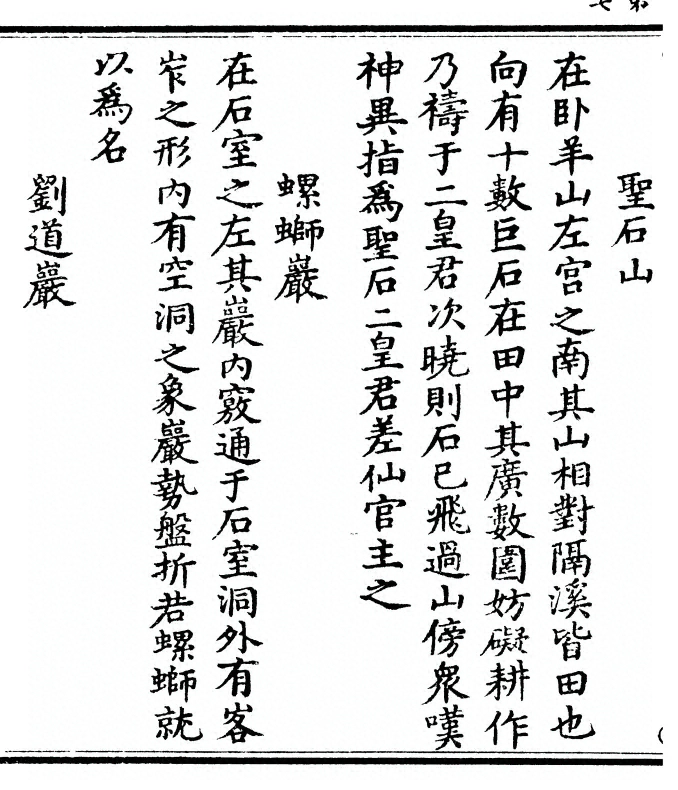 聖石山
在卧羊山左宫之南其山相對隔溪皆田也
向有十數巨石在田中其廣數圍妨礙耕作
乃禱于二皇君次曉則石已飛過山傍衆嘆
神異指爲聖石二皇君差仙官主之
螺螄巖
在石室之左其巖内竅通于石室洞外有窄
岝之形内有空洞之象巖勢盤折若螺螄就
以爲名
劉道巖